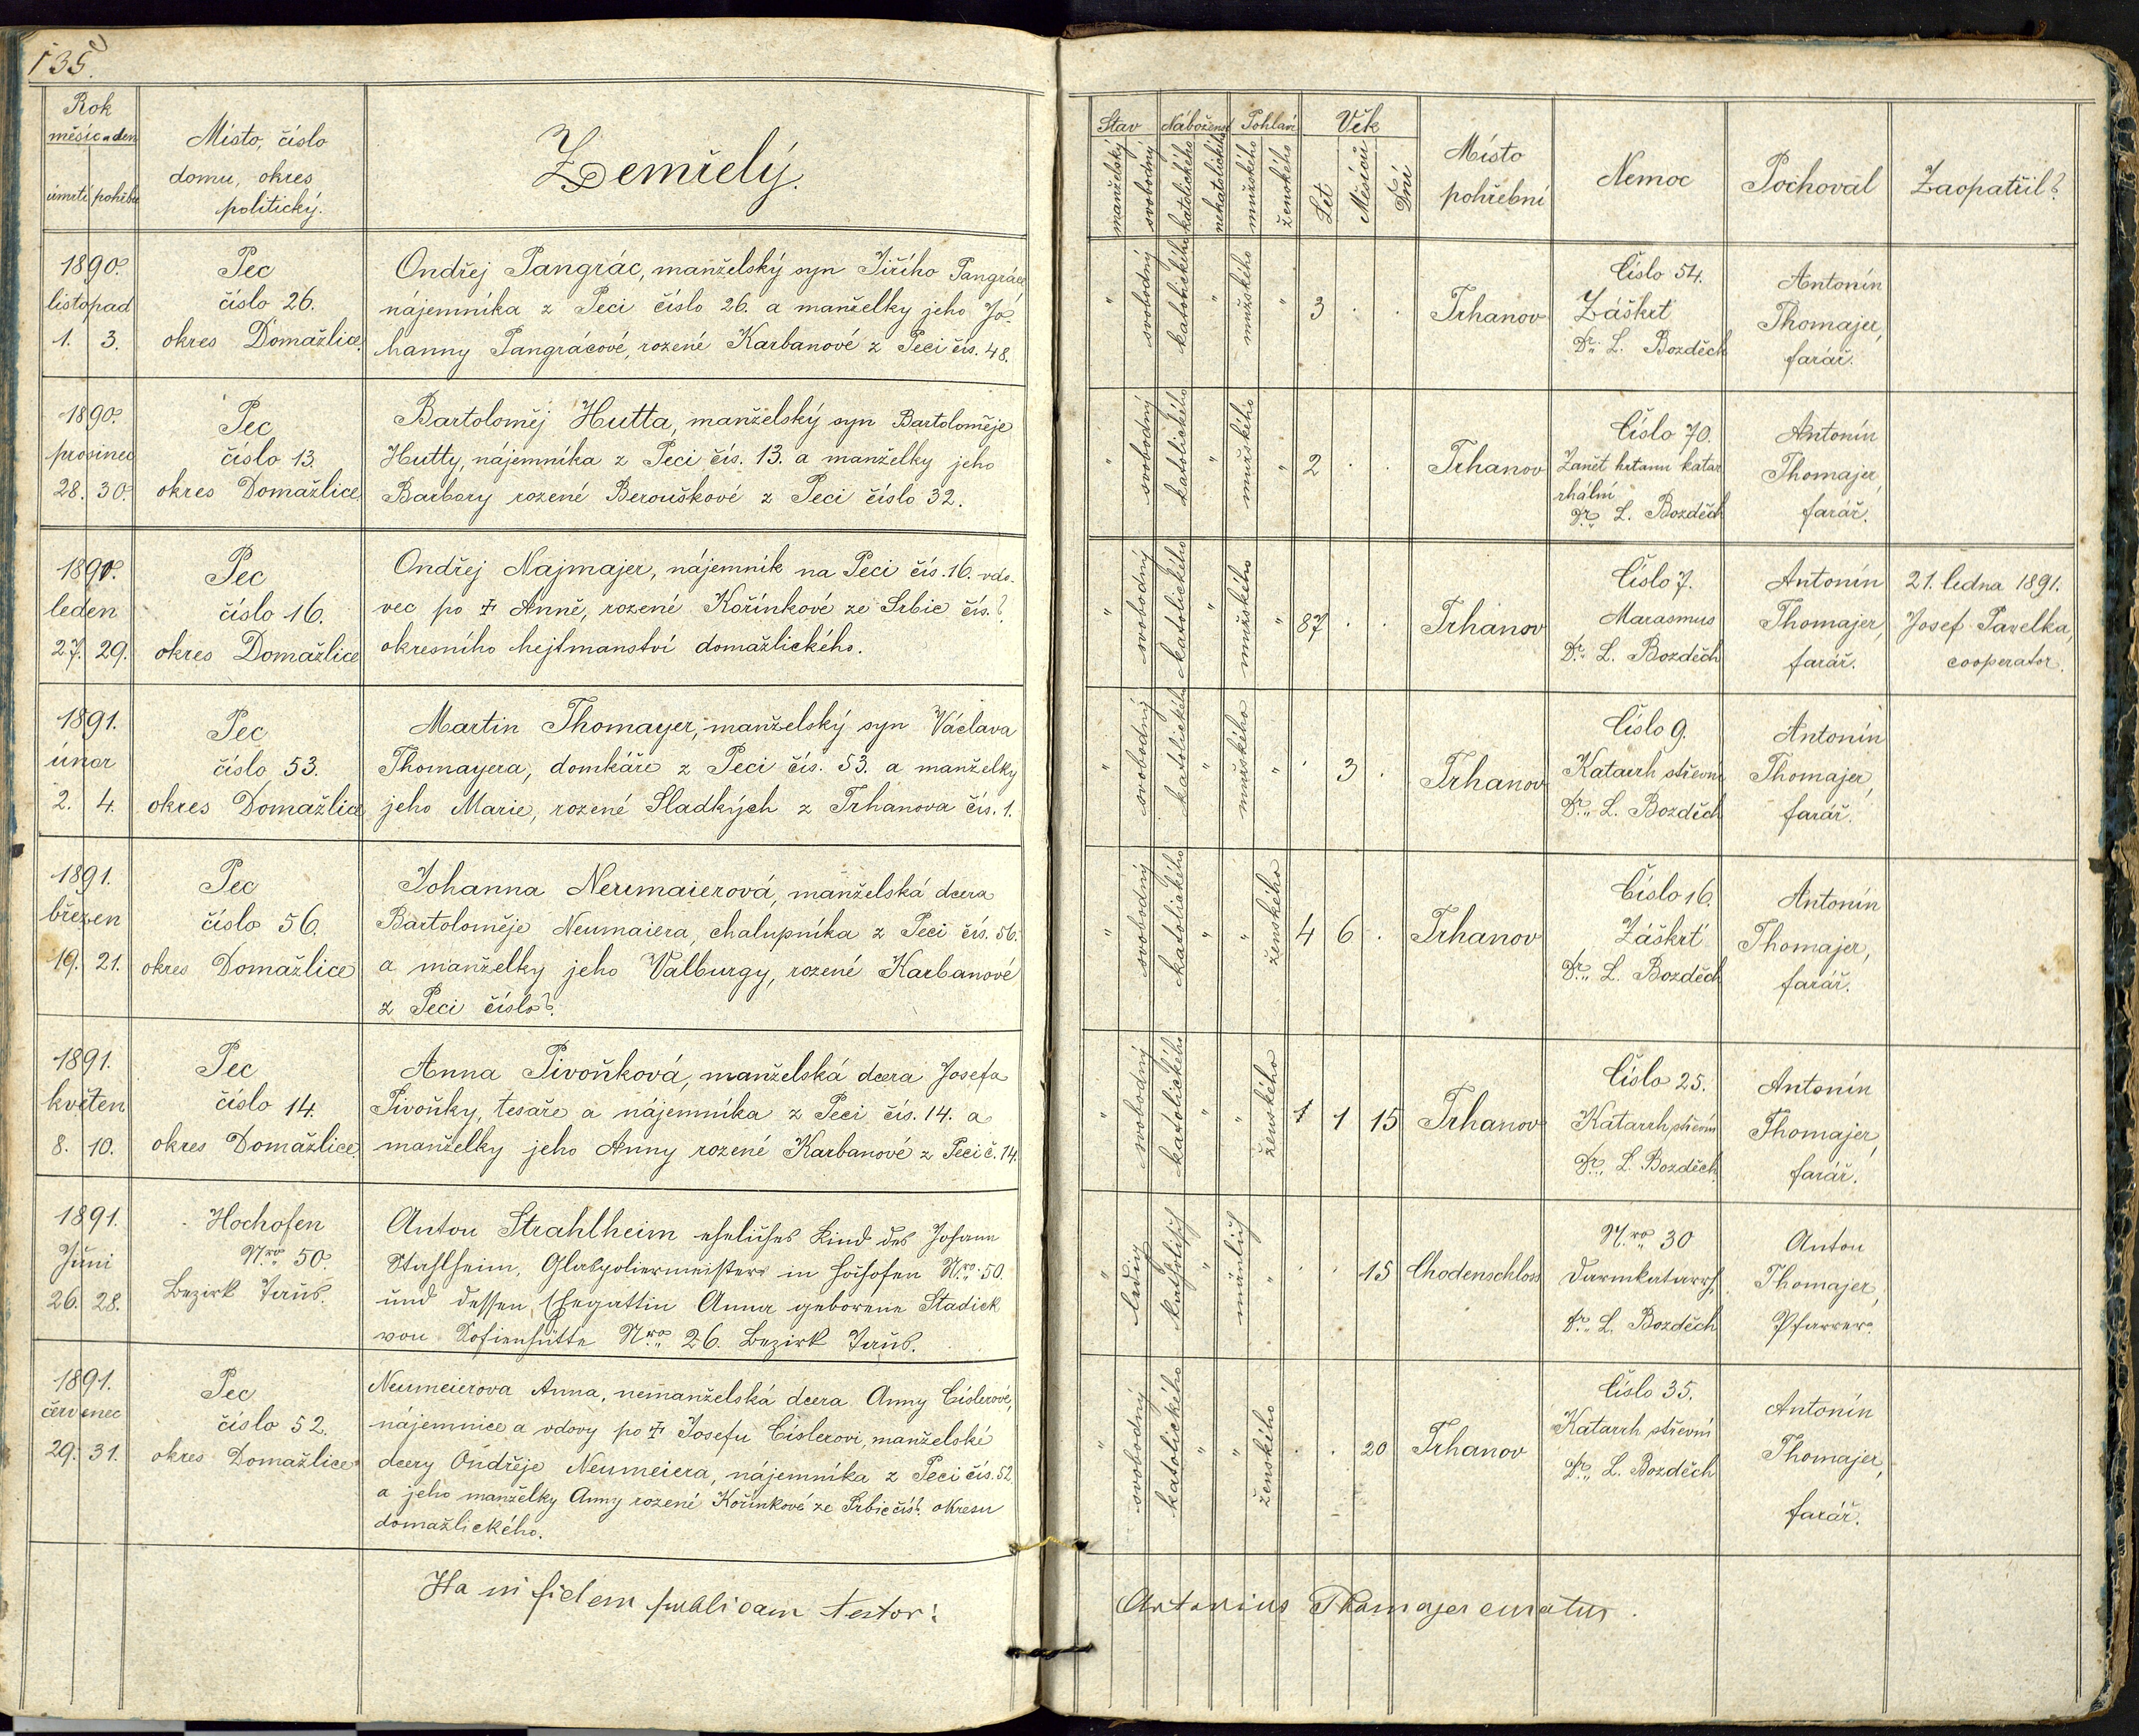 135.
Rok
měsíc a den
úmrtí pohřbu
Místo, číslo
domu, okres
politický.
Zemřelý.
Stav
manželský
svobodný
Nábožens.
katolického
nekatolického
Pohlaví
mužského
ženského
Věk
Let
Měsíců
Dní
Místo
pohřební
Nemoc
Pochoval
Zaopatřil?
1890.
listopad
1. 3.
Pec
číslo 26.
okres Domažlice.
Ondřej Pangrác, manželský syn Jiřího Pangráce
nájemníka z Peci číslo 26. a manželky jeho Jo-
hanny Pangrácové, rozené Karbanové z Peci čís. 48.
" svobodný katolického " mužského " 3 . .
Trhanov
Číslo 54.
Záškrt
Dr. L. Bozděch
Antonín
Thomajer,
farář.
1890.
prosinec
28. 30.
Pec
číslo 13.
okres Domažlice.
Bartoloměj Hutta, manželský syn Bartoloměje
Hutty, nájemníka z Peci čís. 13. a manželky jeho
Barbory rozené Berouškové z Peci číslo 32.
" svobodný katolického " mužského " 2 . .
Trhanov
Číslo 70.
Zanět hrtanu katar
rhální
Dr. L. Bozděch
Antonín
Thomajer,
farář.
1891.
leden
27. 29.
Pec
číslo 16.
okres Domažlice
Ondřej Najmajer, nájemník na Peci čís. 16. vdo-
vec po † Anně, rozené Kořínkové ze Srbic čís.?
okresního hejtmanství domažlického.
" svobodný katolického " mužského " 87 . .
Trhanov
Číslo 7.
Marasmus
Dr. L. Bozděch
Antonín
Thomajer,
farář.
21. ledna 1891.
Josef Pavelka,
cooperator.
1891.
únor
2. 4.
Pec
číslo 53.
okres Domažlice
Martin Thomayer, manželský syn Václava
Thomayera, domkáře z Peci čís. 53. a manželky
jeho Marie, rozené Sladkých z Trhanova čís. 1.
" svobodný katolického " mužského " . 3 .
Trhanov
Číslo 9.
Katarrh střevní
Dr. L. Bozděch
Antonín
Thomajer,
farář.
1891.
březen
19. 21.
Pec
číslo 56.
okres Domažlice
Johanna Neumaierová, manželská dcera
Bartoloměje Neumaiera, chalupníka z Peci čís. 56.
a manželky jeho Valburgy, rozené Karbanové
z Peci číslo?.
" svobodný katolického " " ženského 4 6 .
Trhanov
Číslo 16.
Záškrt
Dr. L. Bozděch
Antonín
Thomajer,
farář.
1891.
květen
8. 10.
Pec
číslo 14.
okres Domažlice.
Anna Pivoňková, manželská dcera Josefa
Pivoňky, tesaře a nájemníka z Peci čís. 14. a
manželky jeho Anny rozené Karbanové z Peci č. 14.
" svobodný katolického " " ženského 1 1 15
Trhanov
Číslo 25.
Katarrh střevní
Dr. L. Bozděch
Antonín
Thomajer,
farář.
1891.
Juni
26. 28.
Hochofen
Nro. 50.
Bezirk Taus.
Anton Strahlheim eheliches Kind des Johann
Stahlheim, Glaspoliermeisters in Hochofen Nro. 50.
und dessen Ehegattin Anna geborene Stadick
von Sofienhütte Nro. 26. Bezirk Taus.
" ledig katholisch " mänlich " . . 15
Chodenschloss
Nro 30
Darmkatarrh
Dr. L. Bozděch
Anton
Thomajer,
Pfarrer.
1891.
červenec
29. 31.
Pec
číslo 52.
okres Domažlice
Neumeierova Anna, nemanželská dcera Anny Cislerové,
nájemnice a vdovy po † Josefu Cislerovi, manželské
dcery Ondřeje Neumeiera, nájemníka z Peci čís. 52
a jeho manželky Anny rozené Kořínkové ze Srbic čís?. okresu
domažlického.
" svobodný katolického " " ženského . . 20
Trhanov
Číslo 35.
Katarrh střevní
Dr. L. Bozděch
Antonín
Thomajer,
farář.
Ita in fidem publicam testor:
Antonius Thomajer curatus.